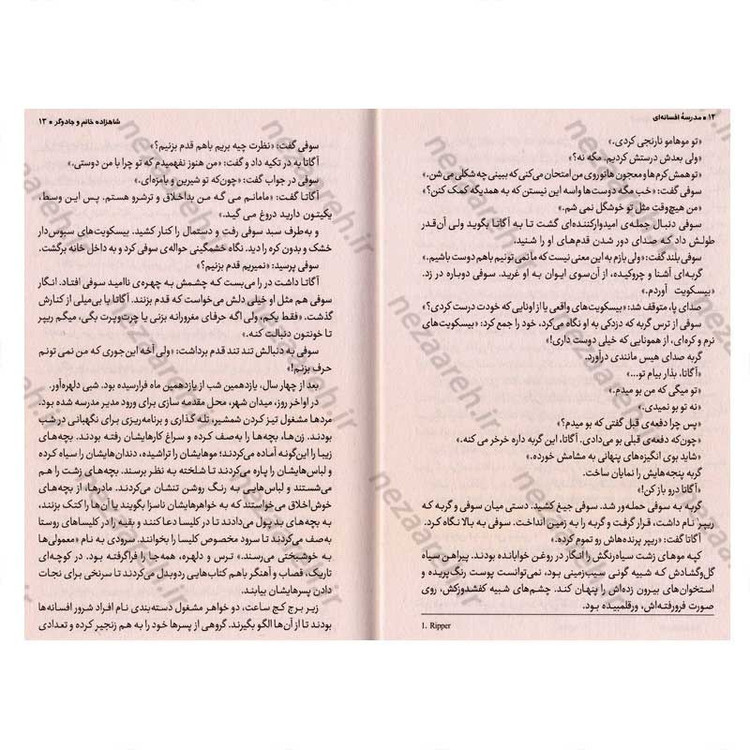 ۱۲ • مدرسهٔ افسانه‌ای
«تو موهامو نارنجی کردی.»
«ولی بعدش درستش کردیم. مگه نه؟»
«تو همش کرم‌ها و معجون هاتو روی من امتحان می‌کنی که ببینی چه شکلی می شن.»
سوفی گفت: «خب مگه دوست‌ها واسه این نیستن که به همدیگه کمک کنن؟»
«من هیچ‌وقت مثل تو خوشگل نمی شم.»
سوفی دنبال جمله‌ی امیدوارکننده‌ای گشت تا به آگاتا بگوید ولی آن‌قدر
طولش داد که صدای دور شدن قدم‌های او را شنید.
سوفی بلند گفت: «ولی بازم به این معنی نیست که ما نمی تونیم باهم دوست باشیم.»
گربه‌ای آشنا و چروکیده، از آن‌سوی ایوان به او غرید. سوفی دوباره در زد.
«بیسکویت آوردم.»
صدای پا، متوقف شد: «بیسکویت‌های واقعی یا از اونایی که خودت درست کردی؟»
سوفی از ترس گربه که دزدکی به او نگاه می‌کرد، خود را جمع کرد: «بیسکویت‌های
نرم و کره‌ای، از همونایی که خیلی دوست داری!»
گربه صدای هیس مانندی درآورد.
«آگاتا، بذار بیام تو...»
«تو میگی که من بو میدم.»
«نه تو بو نمیدی.»
«پس چرا دفعه‌ی قبل گفتی که بو میدم؟»
«چون‌که دفعه‌ی قبلی بو می‌دادی. آگاتا، این گربه داره خرخر می کنه.»
«شاید بوی انگیزه‌های پنهانی به مشامش خورده.»
گربه پنجه‌هایش را نمایان ساخت.
«آگاتا درو باز کن!»
گربه به سوفی حمله‌ور شد. سوفی جیغ کشید. دستی میان سوفی و گربه که
ریپر نام داشت، قرار گرفت و گربه را به زمین انداخت. سوفی به بالا نگاه کرد.
آگاتا گفت: «ریپر پرنده‌هاش رو تموم کرده.»
کپه موهای زشت سیاه‌رنگش را انگار در روغن خوابانده بودند. پیراهن سیاه
گل‌وگشادش که شبیه گونی سیب‌زمینی بود، نمی‌توانست پوست رنگ‌پریده و
استخوان‌های بیرون زده‌اش را پنهان کند. چشم‌های شبیه کفشدوزکش، روی
صورت فرورفته‌اش، ورقلمبیده بود.
1. Ripper
شاهزاده خانم و جادوگر • ۱۳
سوفی گفت: «نظرت چیه بریم باهم قدم بزنیم؟»
آگاتا به در تکیه داد و گفت: «من هنوز نفهمیدم که تو چرا با من دوستی.»
سوفی در جواب گفت: «چون‌که تو شیرین و بامزه‌ای.»
آگاتا گفت: «مامانم می گه من بداخلاق و ترشرو هستم. پس این وسط،
یکیتون دارید دروغ می گید.»
و به‌طرف سبد سوفی رفت و دستمال را کنار کشید. بیسکویت‌های سبوس‌دار
خشک و بدون کره را دید. نگاه خشمگینی حواله‌ی سوفی کرد و به داخل خانه برگشت.
سوفی پرسید: «نمیریم قدم بزنیم؟»
آگاتا داشت در را می‌بست که چشمش به چهره‌ی ناامید سوفی افتاد. انگار
سوفی هم مثل او خیلی دلش می‌خواست که قدم بزنند. آگاتا با بی‌میلی از کنارش
گذشت. «فقط یکم، ولی اگه حرفای مغرورانه بزنی یا چرت‌وپرت بگی، میگم ریپر
تا خونتون دنبالت کنه.»
سوفی به دنبالش تند تند قدم برداشت: «ولی آخه این‌جوری که من نمی تونم
حرف بزنم!»
بعد از چهار سال، یازدهمین شب از یازدهمین ماه فرارسیده بود. شبی دلهره‌آور.
در اواخر روز، میدان شهر، محل مقدمه سازی برای ورود مدیر مدرسه شده بود.
مردها مشغول تیز کردن شمشیر، تله گذاری و برنامه‌ریزی برای نگهبانی در شب
بودند. زن‌ها، بچه‌ها را به‌صف کرده و سراغ کارهایشان رفته بودند. بچه‌های
زیبا را این‌گونه آماده می‌کردند؛ موهایشان را تراشیده، دندان‌هایشان را سیاه کرده
و لباس‌هایشان را پاره می‌کردند تا شلخته به نظر برسند. بچه‌های زشت را هم
می‌شستند و لباس‌هایی به رنگ روشن تنشان می‌کردند. مادرها، از بچه‌های
خوش‌اخلاق می‌خواستند که به خواهرهایشان ناسزا بگویند یا آن‌ها را کتک بزنند،
به بچه‌های بد پول می‌دادند تا در کلیسا دعا کنند و بقیه را در کلیساهای روستا
به‌صف می‌کردند تا سرود مخصوص کلیسا را بخوانند. سرودی به نام «معمولی‌ها
به خوشبختی می‌رسند.» ترس و دلهره، همه‌جا را فراگرفته بود. در کوچه‌ای
تاریک، قصاب و آهنگر باهم کتاب‌هایی ردوبدل می‌کردند تا سرنخی برای نجات
دادن پسرهایشان بیابند.
زیر برج کج ساعت، دو خواهر مشغول دسته‌بندی نام افراد شرور افسانه‌ها
بودند تا از آن‌ها الگو بگیرند. گروهی از پسرها خود را به هم زنجیر کرده و تعدادی
nezaareh.ir